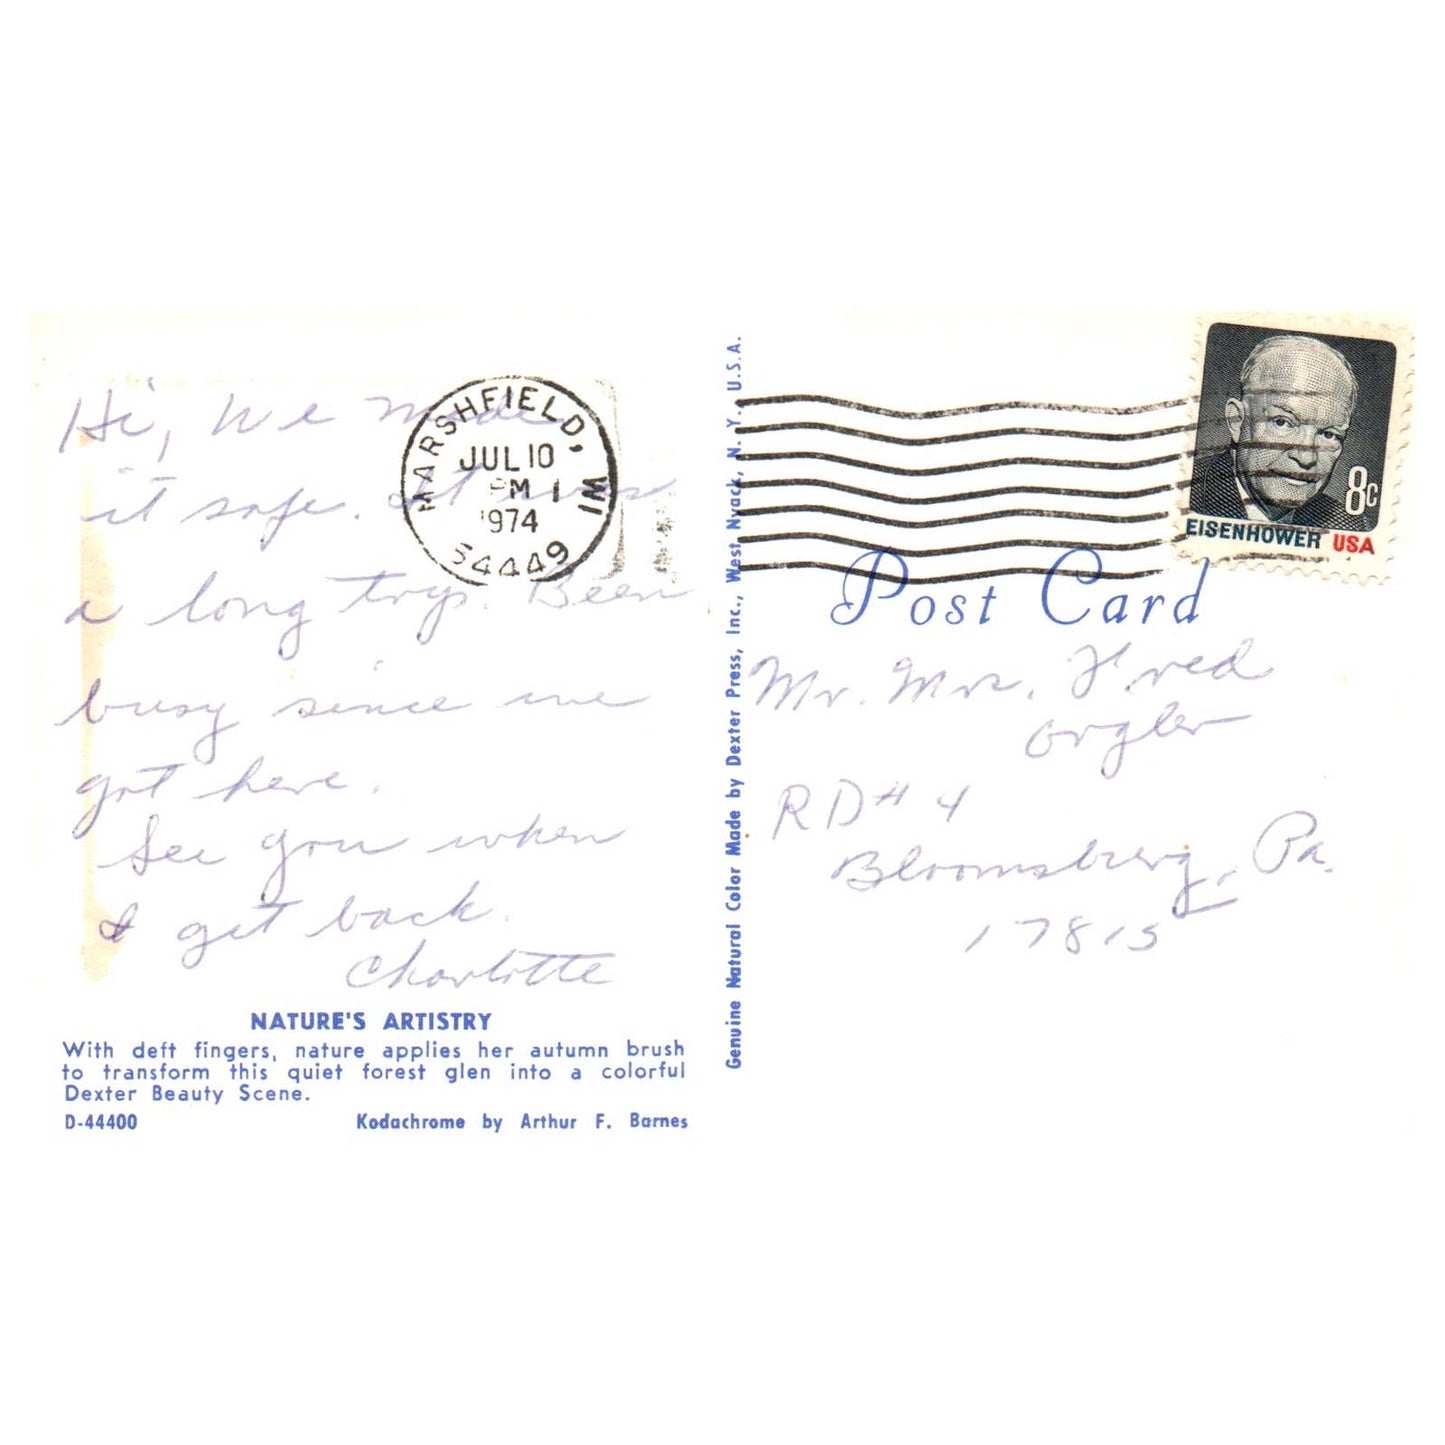 Hi, We made
it safe. It was
a long tryp. Been
busy since we
got here.
See you when
I get back.
Charlotte
NATURE'S ARTISTRY
With deft fingers, nature applies her autumn brush
to transform this quiet forest glen into a colorful
Dexter Beauty Scene.
D-44400 Kodachrome by Arthur F. Barnes
MARSHFIELD, WI
JUL 10
PM 1
1974
54449
Genuine Natural Color Made by Dexter Press, Inc., West Nyack, N. Y., U.S.A.
8c
EISENHOWER USA
Post Card
Mr. Mrs. Fred
RD # 4
Bloomsburg, Pa.
17815